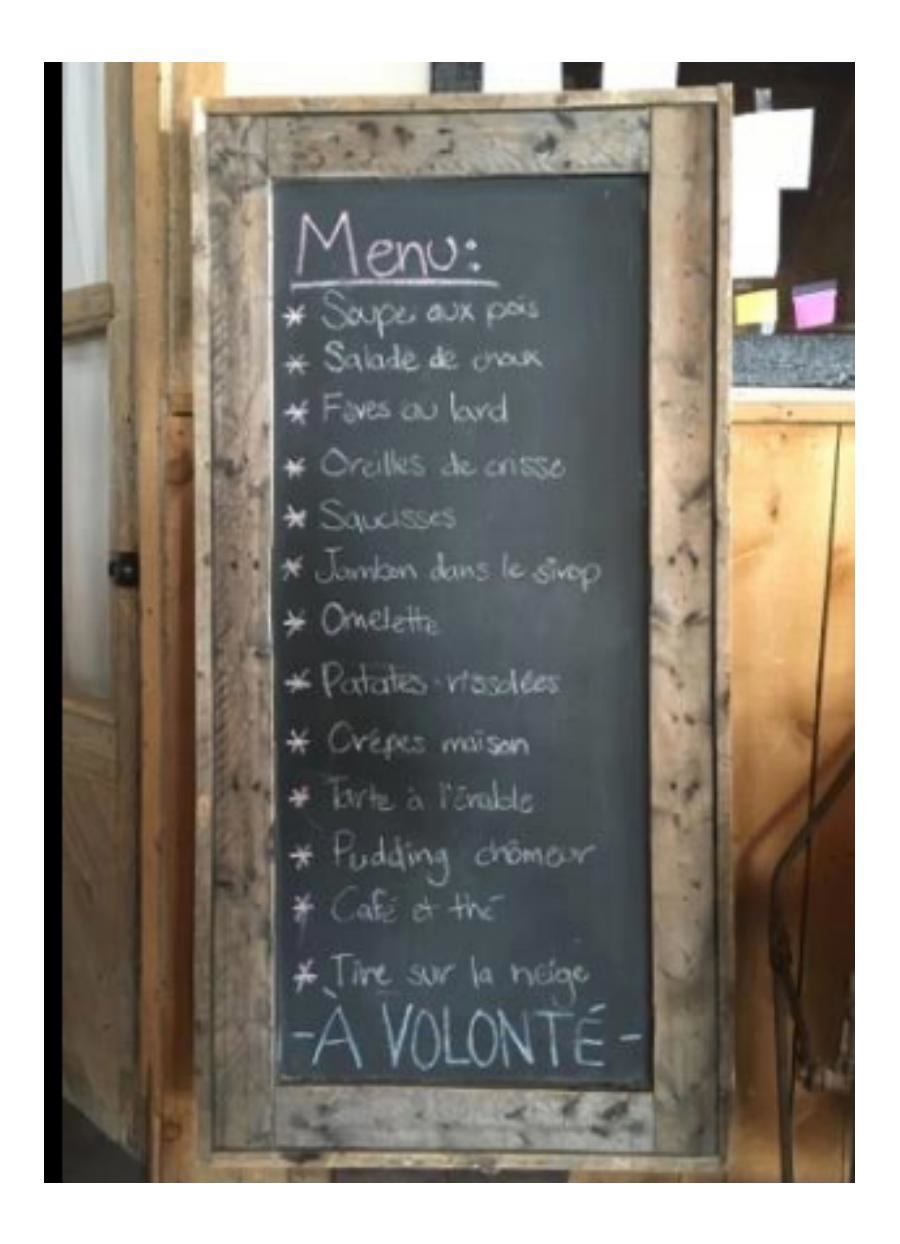 Menu:
* Soupe aux pois
* Salade de choux
* Fèves au lard
* Oreilles de crisse
* Saucisses
* Jambon dans le sirop
* Omelette
* Patates rissolées
* Crêpes maison
* Tarte à l'érable
* Pudding chômeur
* Café et thé
* Tire sur la neige
-À VOLONTÉ-